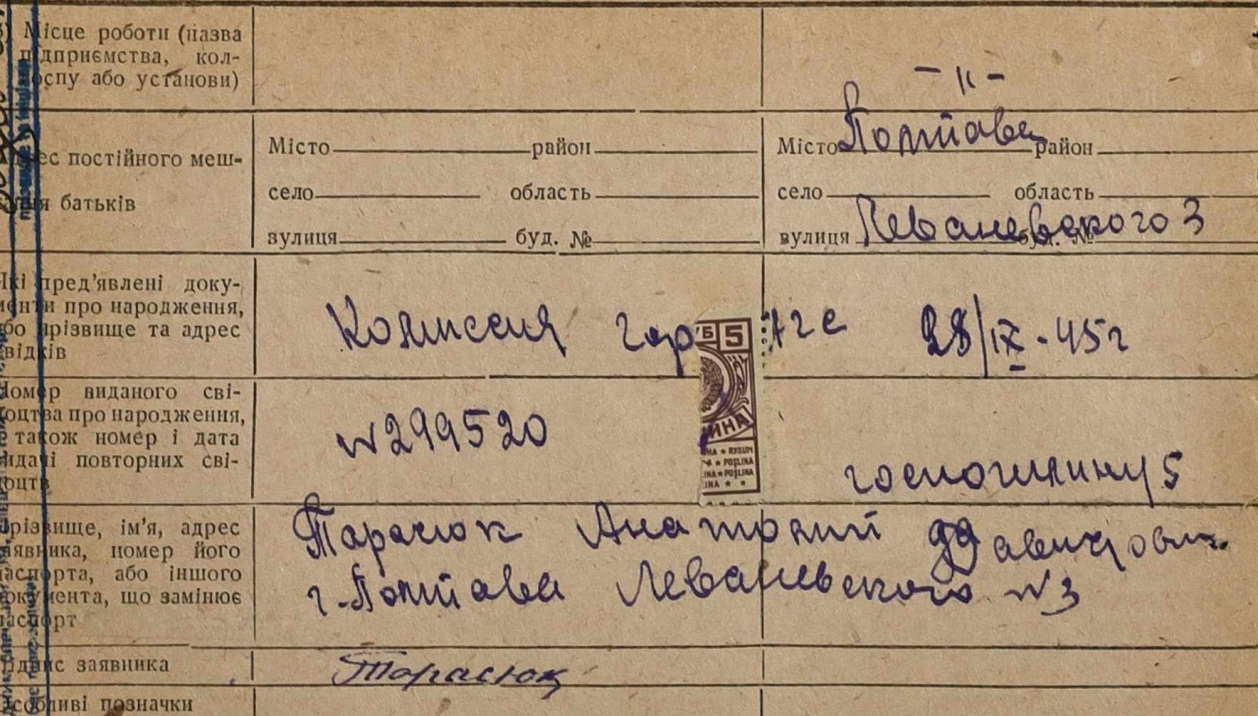 ) Місце роботи (назва
підприємства, кол-
оспу або установи)
— " —
ес постійного меш-
ня батьків
Місто район
село область
вулиця буд. №
Місто Полтава район
село область
вулиця Леваневского 3 буд. №
кі пред'явлені доку-
менти про народження,
бо прізвище та адрес
відків
Комиссия гор 28/IX-45г
Номер виданого сві-
оцтва про народження,
також номер і дата
идачі повторних сві-
оцтв
№299520
УБ 5
ИНА
госпошлину 5
різвище, ім'я, адрес
аявника, номер його
аспорта, або іншого
окумента, що замінює
аспорт
Тарасюк Анатолий
г. Полтава Леваневского №3
ідпис заявника
Тарасюк
собливі позначки